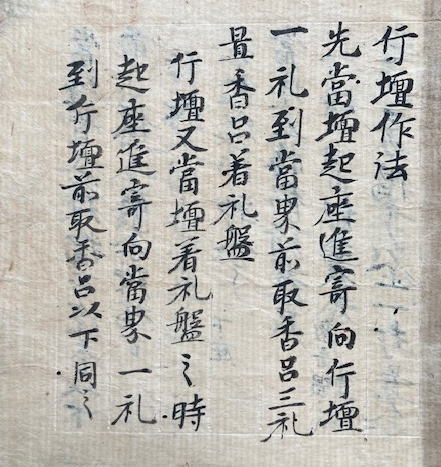 行壇作法
先當壇起座進寄向行壇
一礼到當界前取香呂三礼
置香呂着礼盤
行壇又當壇着礼盤之時
起座進寄向當界一礼
到行壇前取香呂以下同之